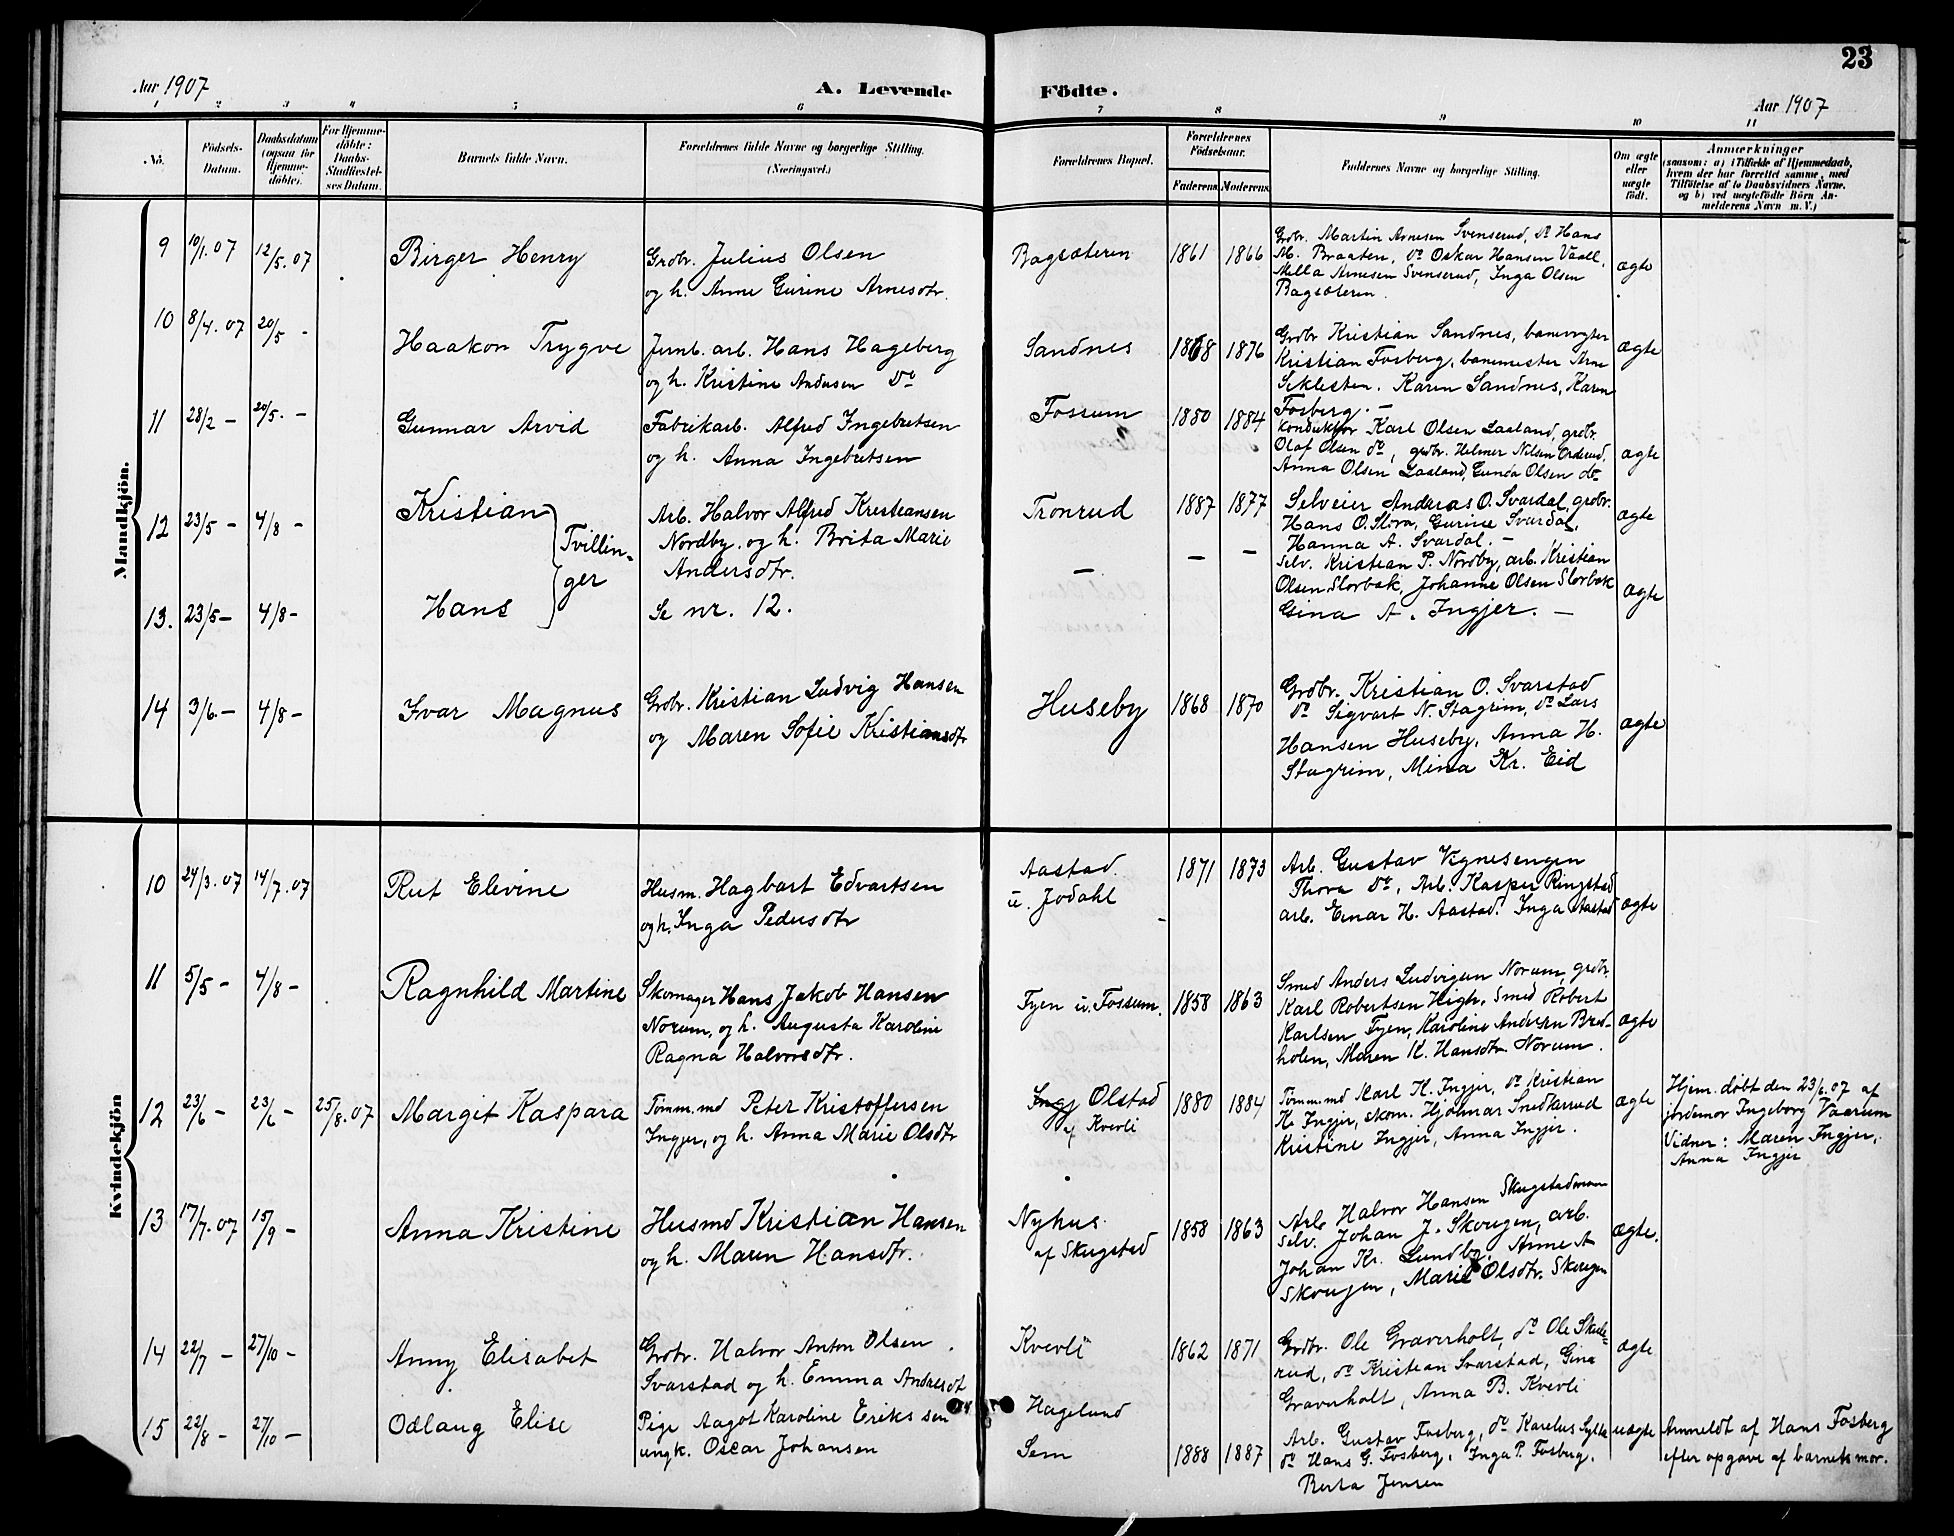 23
Aar 1907
A. Levende Födte.
Aar 1907
1 2 3 4 5 6 7 8 9 10 11
No.
Födsels-
Datum.
Daabsdatum
(ogsaa for
Hjemme-
döbte).
For Hjemme-
döbte:
Daabs-
Stadfæstel-
ses Datum.
Barnets fulde Navn.
Forældrenes fulde Navne og borgerlige Stilling.
(Næringsvei.)
Forældrenes Bopæl.
Forældrenes
Födselsaar.
Faderens Moderens
Faddernes Navne og borgerlige Stilling.
Om ægte
eller
uægte
födt.
Anmærkninger
(saasom: a) i Tilfælde af Hjemmedaab,
hvem der har forrettet samme, med
Tilföielse af to Daabsvidners Navne,
og b) ved uægtefödte Börn An-
melderens Navn m. V.)
Mandkjön.
9 10/1.07 12/5.07 Birger Henry
Grdbr. Julius Olsen
og h. Anne Gurine Arnesdtr.
Bagsæteren 1861 1866
Grdbr. Martin Arnesen Svenserud, do Hans
M. Braaten, do Oskar Hansen Vaall,
Milla Arnesen Svenserud, Inga Olsen
Bagsæteren.
ægte
10 8/4.07 20/5 - Haakon Trygve
Jernb. arb. Hans Hageberg
og h. Kristine Andersen do
Sandnes 1868 1876
Grdbr Kristian Sandnes, banevogter
Kristian Fosberg, banemester Arne
Seklesten. Karen Sandnes, Karen
Fosberg. -
ægte
11 28/2 - 20/5. - Gunnar Arvid
Fabrikarb. Alfred Ingebretsen
og h. Anna Ingebretsen
Fossum 1880 1884
Konduktør Karl Olsen Laaland, grdbr.
Olaf Olsen do, grdbr. Helmer Nilsen Orderud,
Anna Olsen Laaland, Gunda Olsen do
ægte
12 23/5 - 4/8 - Kristian
Tvillin-
ger
Arb. Halvor Alfred Kristiansen
Nordby. og h. Brita Marie
Andersdtr.
Tronrud 1887 1877
Selveier Anderas O. Svardal, grdbr.
Hans O. Slora, Gurine Svardal,
Hanna A. Svardal. -
ægte
13. 23/5 - 4/8 - Hans
Se nr. 12.
- - -
Selv. Kristian P. Nordby, arb. Kristian
Olsen Slorbak, Johanne Olsen Slorbak
Gina A. Ingjer. -
ægte
14 3/6. - 4/8 - Ivar Magnus
Grdbr. Kristian Ludvig Hansen
og Maren Sofie Kristiansdtr
Huseby 1868 1870
Grdbr. Kristian O. Svarstad
do Sigvart N. Stagrim, do Lars
Hansen Huseby, Anna H.
Stagrim, Mina Kr. Eid
ægte
Kvindekjön
10 24/3.07 14/7.07 Rut Elevine
Husm. Hagbart Edvartsen
og h. Inga Pedersdtr
Aastad.
u. Jødahl
1871 1873
Arb. Gustav Vignesengen
Thora do, Arb. Kasper Ringstad
arb. Einar H. Aastad. Inga Aastad
ægte
11 5/5 - 4/8 - Ragnhild Martine
Skomager Hans Jakob Hansen
Norum, og h. Augusta Karoline
Ragna Halvorsdtr.
Fyen u. Fossum. 1858 1863
Smed Anders Ludvigsen Norum, grdbr.
Karl Robertsen High, Smed Robert
Karlsen Fyen, Karoline Andersen Bred-
holen, Maren K. Hansdtr. Norum.
ægte
12 23/6 - 23/6 - 25/8.07 Margit Kaspara
Tømm.md Peter Kristoffersen
Ingjer, og h. Anna Marie Olsdtr
Ingj Olstad
af Kverli
1880 1884
Tømm.md Karl K. Ingjer, do Kristian
K. Ingjer, skom. Hjalmar Snedkerrud
Kristine Ingjer, Anna Ingjer.
ægte
Hjem. døbt den 23/6.07 af
jordemor Ingeborg Vaarum
Vidner: Maren Ingjer,
Anna Ingjer
13 17/7.07 15/9 - Anna Kristine
Husmd Kristian Hansen
og h. Maren Hansdtr.
Nyhus.
af Skugstad
1858 1863
Arb. Halvor Hansen Skugstadmoen
Selv. Johan J. Skougen, arb.
Johan Kr. Lundby. Anne A
Skougen, Marie Olsdtr. Skougen
ægte.
14 22/7 - 27/10 - Anny Elisabet
Grdbr. Halvor Anton Olsen
Svarstad og h. Emma Andresdt
Kverli 1862 1871
Grdbr. Ole Graverholt, do Ole Skule-
rud, do Kristian Svarstad, Gina
Graverholt, Anna B. Kverli
ægte
15 22/8 - 27/10 - Odlaug Elise
Pige Aagot Karoline Eriksen
ungk. Oscar Johansen
Hagelund
Sem
1888 1887
Arb. Gustav Fosberg, do Karelius Sylte
do Hans G. Fosberg, Inga P. Fosberg.
Berta Jensen
uægte
Anmeldt af Hans Fosberg
efter opgave af barnets mor.